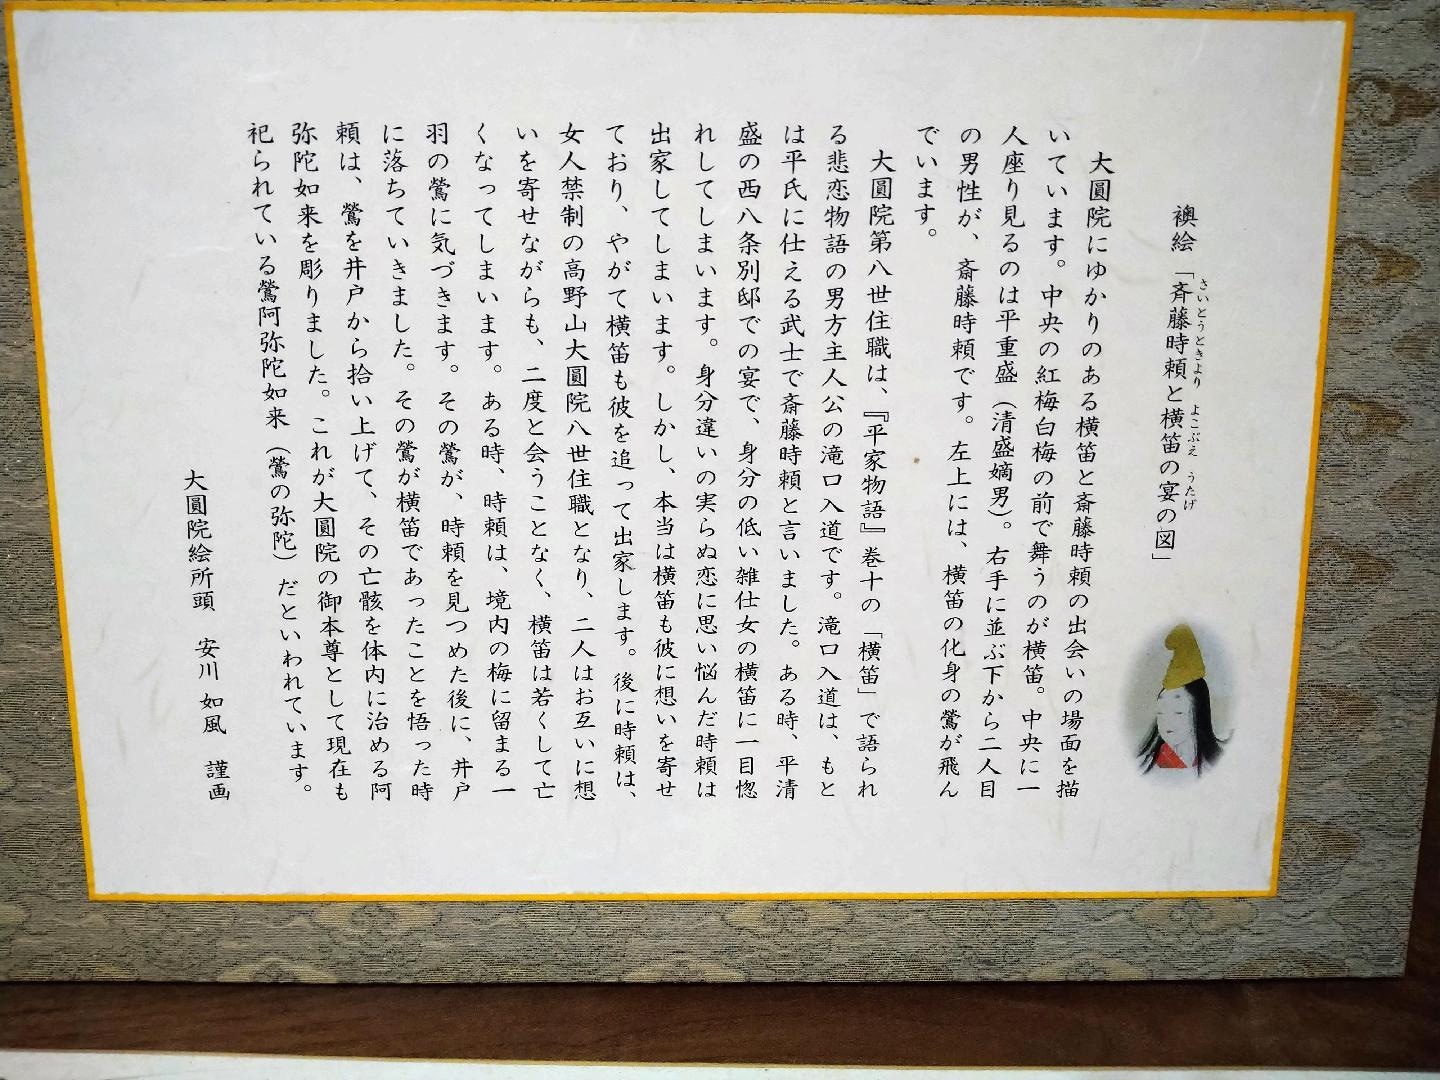 襖絵「斉藤時頼と横笛の宴の図」
さいとうときより よこぶえ うたげ
大圓院にゆかりのある横笛と斎藤時頼の出会いの場面を描
いています。中央の紅梅白梅の前で舞うのが横笛。中央に一
人座り見るのは平重盛（清盛嫡男）。右手に並ぶ下から二人目
の男性が、斎藤時頼です。左上には、横笛の化身の鶯が飛ん
でいます。
大圓院第八世住職は、『平家物語』巻十の「横笛」で語られ
る悲恋物語の男方主人公の滝口入道です。滝口入道は、もと
は平氏に仕える武士で斎藤時頼と言いました。ある時、平清
盛の西八条別邸での宴で、身分の低い雑仕女の横笛に一目惚
れしてしまいます。身分違いの実らぬ恋に思い悩んだ時頼は
出家してしまいます。しかし、本当は横笛も彼に想いを寄せ
ており、やがて横笛も彼を追って出家します。後に時頼は、
女人禁制の高野山大圓院八世住職となり、二人はお互いに想
いを寄せながらも、二度と会うことなく、横笛は若くして亡
くなってしまいます。ある時、時頼は、境内の梅に留まる一
羽の鶯に気づきます。その鶯が、時頼を見つめた後に、井戸
に落ちていきました。その鶯が横笛であったことを悟った時
頼は、鶯を井戸から拾い上げて、その亡骸を体内に治める阿
弥陀如来を彫りました。これが大圓院の御本尊として現在も
祀られている鶯阿弥陀如来（鶯の弥陀）だといわれています。
大圓院絵所頭 安川 如風 謹画